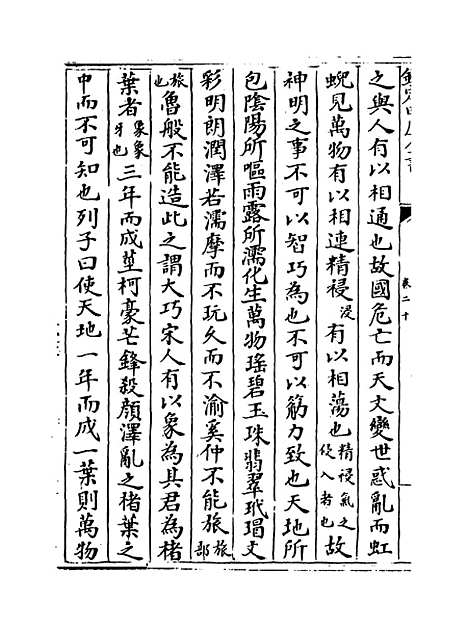 之與人有以相通也故國危亡而天文變世惑亂而虹
蜺見萬物有以相連精祲有以相蕩也精祲氣之侵入者也故
神明之事不可以智巧為也不可以筋力致也天地所
包陰陽所嘔雨露所濡化生萬物瑤碧玉珠翡翠玳瑁文
彩明朗潤澤若濡摩而不玩久而不渝奚仲不能旅旅部
旅也魯般不能造此之謂大巧宋人有以象為其君為楮
葉者象象牙也三年而成莖柯豪芒鋒殺顏澤亂之楮葉之
中而不可知也列子曰使天地一年而成一葉則萬物
卷二十